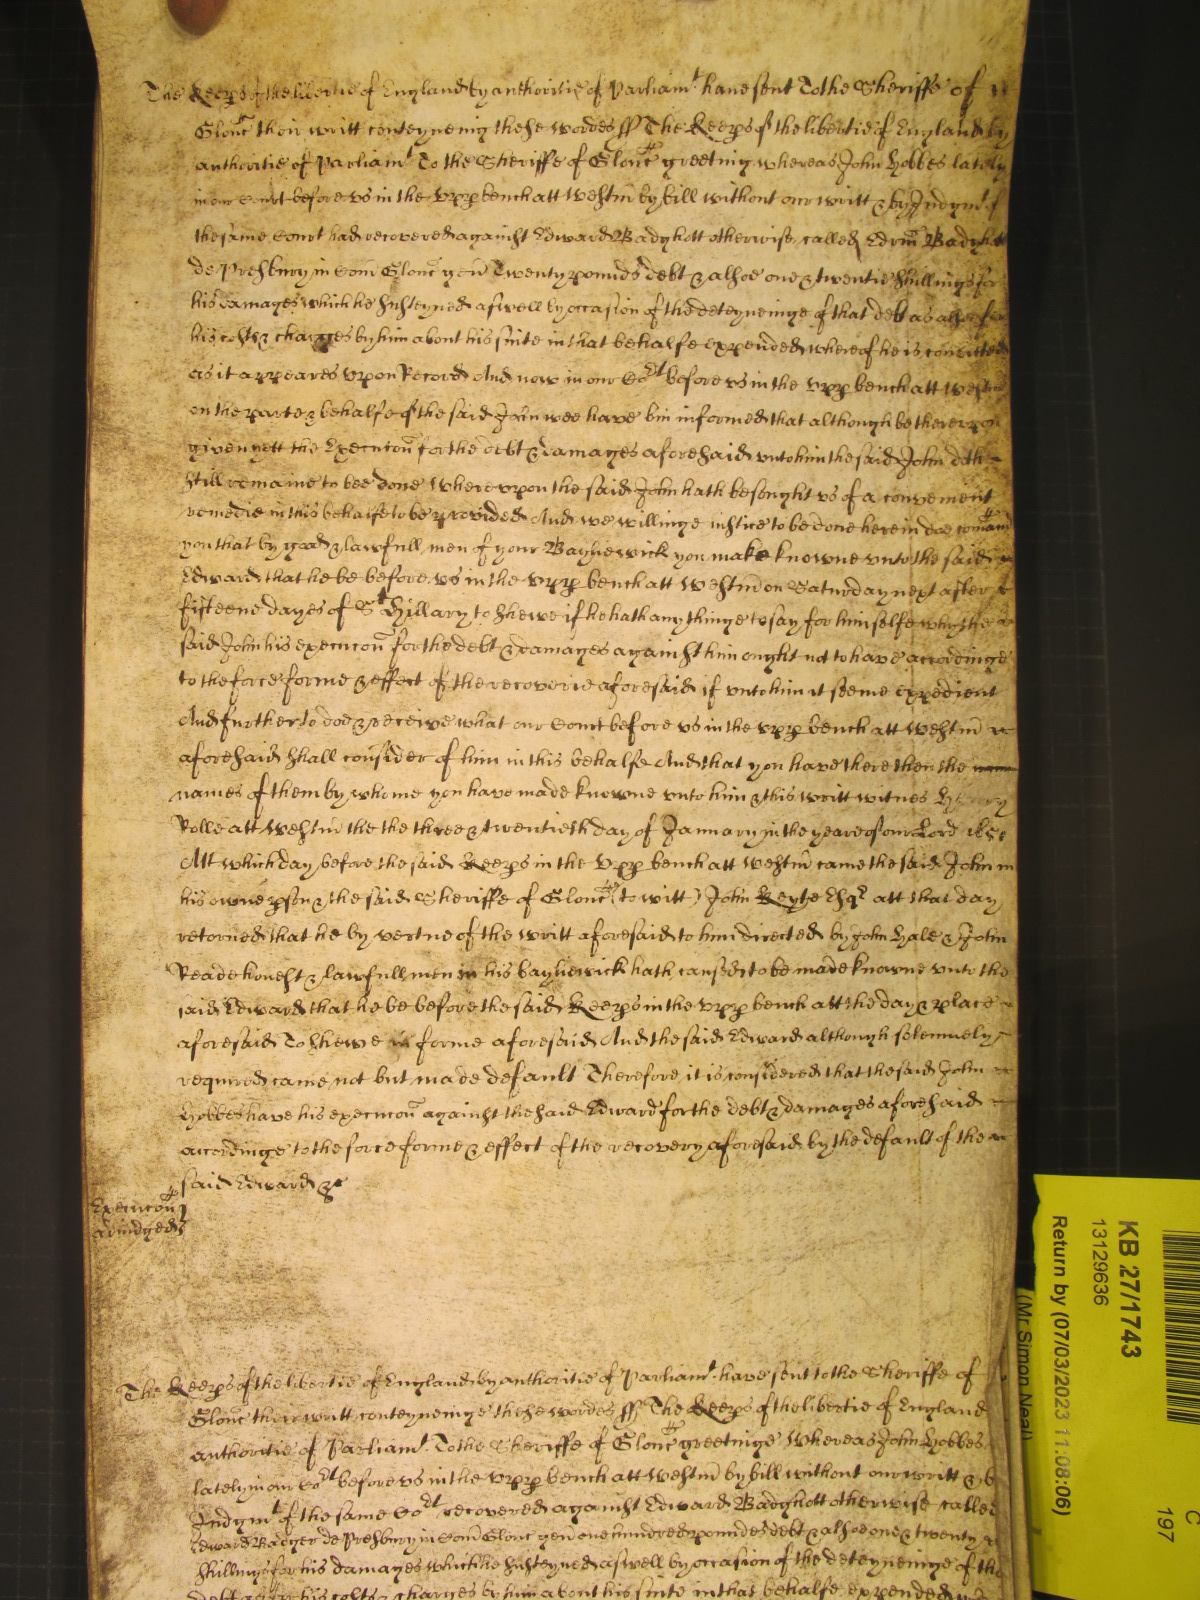 The Keeps of the libertie of England by authoritie of Parliamt have sent To the Sheriffe of
Glouc their writt conteyneing these wordes ss The Keeps of the libertie of England by
authoritie of Parliamt To the Sheriffe of Glouc greeting whereas John Hobbes lately
in our Court before us in the upp bench att Westm by bill without our writt & by Judgmt of
the same Court had recovered against Edward Badghott otherwise called Badg
de Presbury in Com Glouc gen Twenty pounds debt & alsoe one & twentie shillings for
his damages which he susteyned aswell by occasion of the deteyneinge of that debt as alsoe for
his costs & charges by him about his suite in that behalfe expended whereof he is convicted
as it appeares upon Record And now in our Cort before us in the upp bench att Westm
on the parte & behalfe of the said John wee have bin informed that although thereupon
given yett the Execucon for the debt & damages aforesaid unto him the said John doth
still remaine to bee done Whereupon the said John hath besought us of a convenient
remedie in this behalfe to be provided And we willinge justice to be done herein doe comand
you that by good & lawfull men of your Bayliewick you make knowne unto the said
Edward that he be before us in the upp bench att Westm on Saturday next after
fifteene dayes of St Hillary to shewe if he hath any thinge to say for himselfe why the
said John his execucon for the debt & damages against him ought not to have accordinge
to the force forme & effect of the recoverie aforesaid if unto him it seeme expedient
And further to doe & receive what our Court before us in the upp bench att Westm
aforesaid shall consider of him in this behalfe And that you have there then the
names of them by whome you have made knowne unto him & this writt witnes Henry
Rolle att Westm the the three & twentieth day of January in the yeare of our Lord
Att which day before the said Keeps in the upp bench att Westm came the said John in
his owne pson & the said Sheriffe of Glouc (to witt) John Keyte Esqr att that day
retorned that he by vertue of the writt aforesaid to him directed by John Hale & John
Reade honest & lawfull men in his bayliewick hath caused to be made knowne unto the
said Edward that he be before the said Keeps in the upp bench att the day & place
aforesaid To shewe in forme aforesaid And the said Edward although solemnely
required came not but made default Therefore it is considered that the said John
Hobbes have his execucon against the said Edward for the debt & damages aforesaid
accordinge to the force forme & effect of the recovery aforesaid by the default of the
said Edward &c
Execucon
adiudged
The Keeps of the libertie of England by authoritie of Parliamt have sent to the Sheriffe of
Glouc their writt conteyneinge these wordes ss The Keeps of the libertie of England
authoritie of Parliamt To the Sheriffe of Glouc greetinge Whereas John Hobbes
lately in our Cort before us in the upp bench att Westm by bill without our writt & b
Judgmt of the same Cort recovered against Edward Badghott otherwise called
Edward Badger de Presbury in Com Glouc gen one hundred pounds debt & alsoe one & twenty
shillings for his damages which he susteyned aswell by occasion of the deteyneinge of the
debt as for his costs & charges by him about his suite in that behalfe expended
KB 27/1743
13129636
Return by (07/03/2023 11:08:06)
(Mr Simon Neal)
C
197